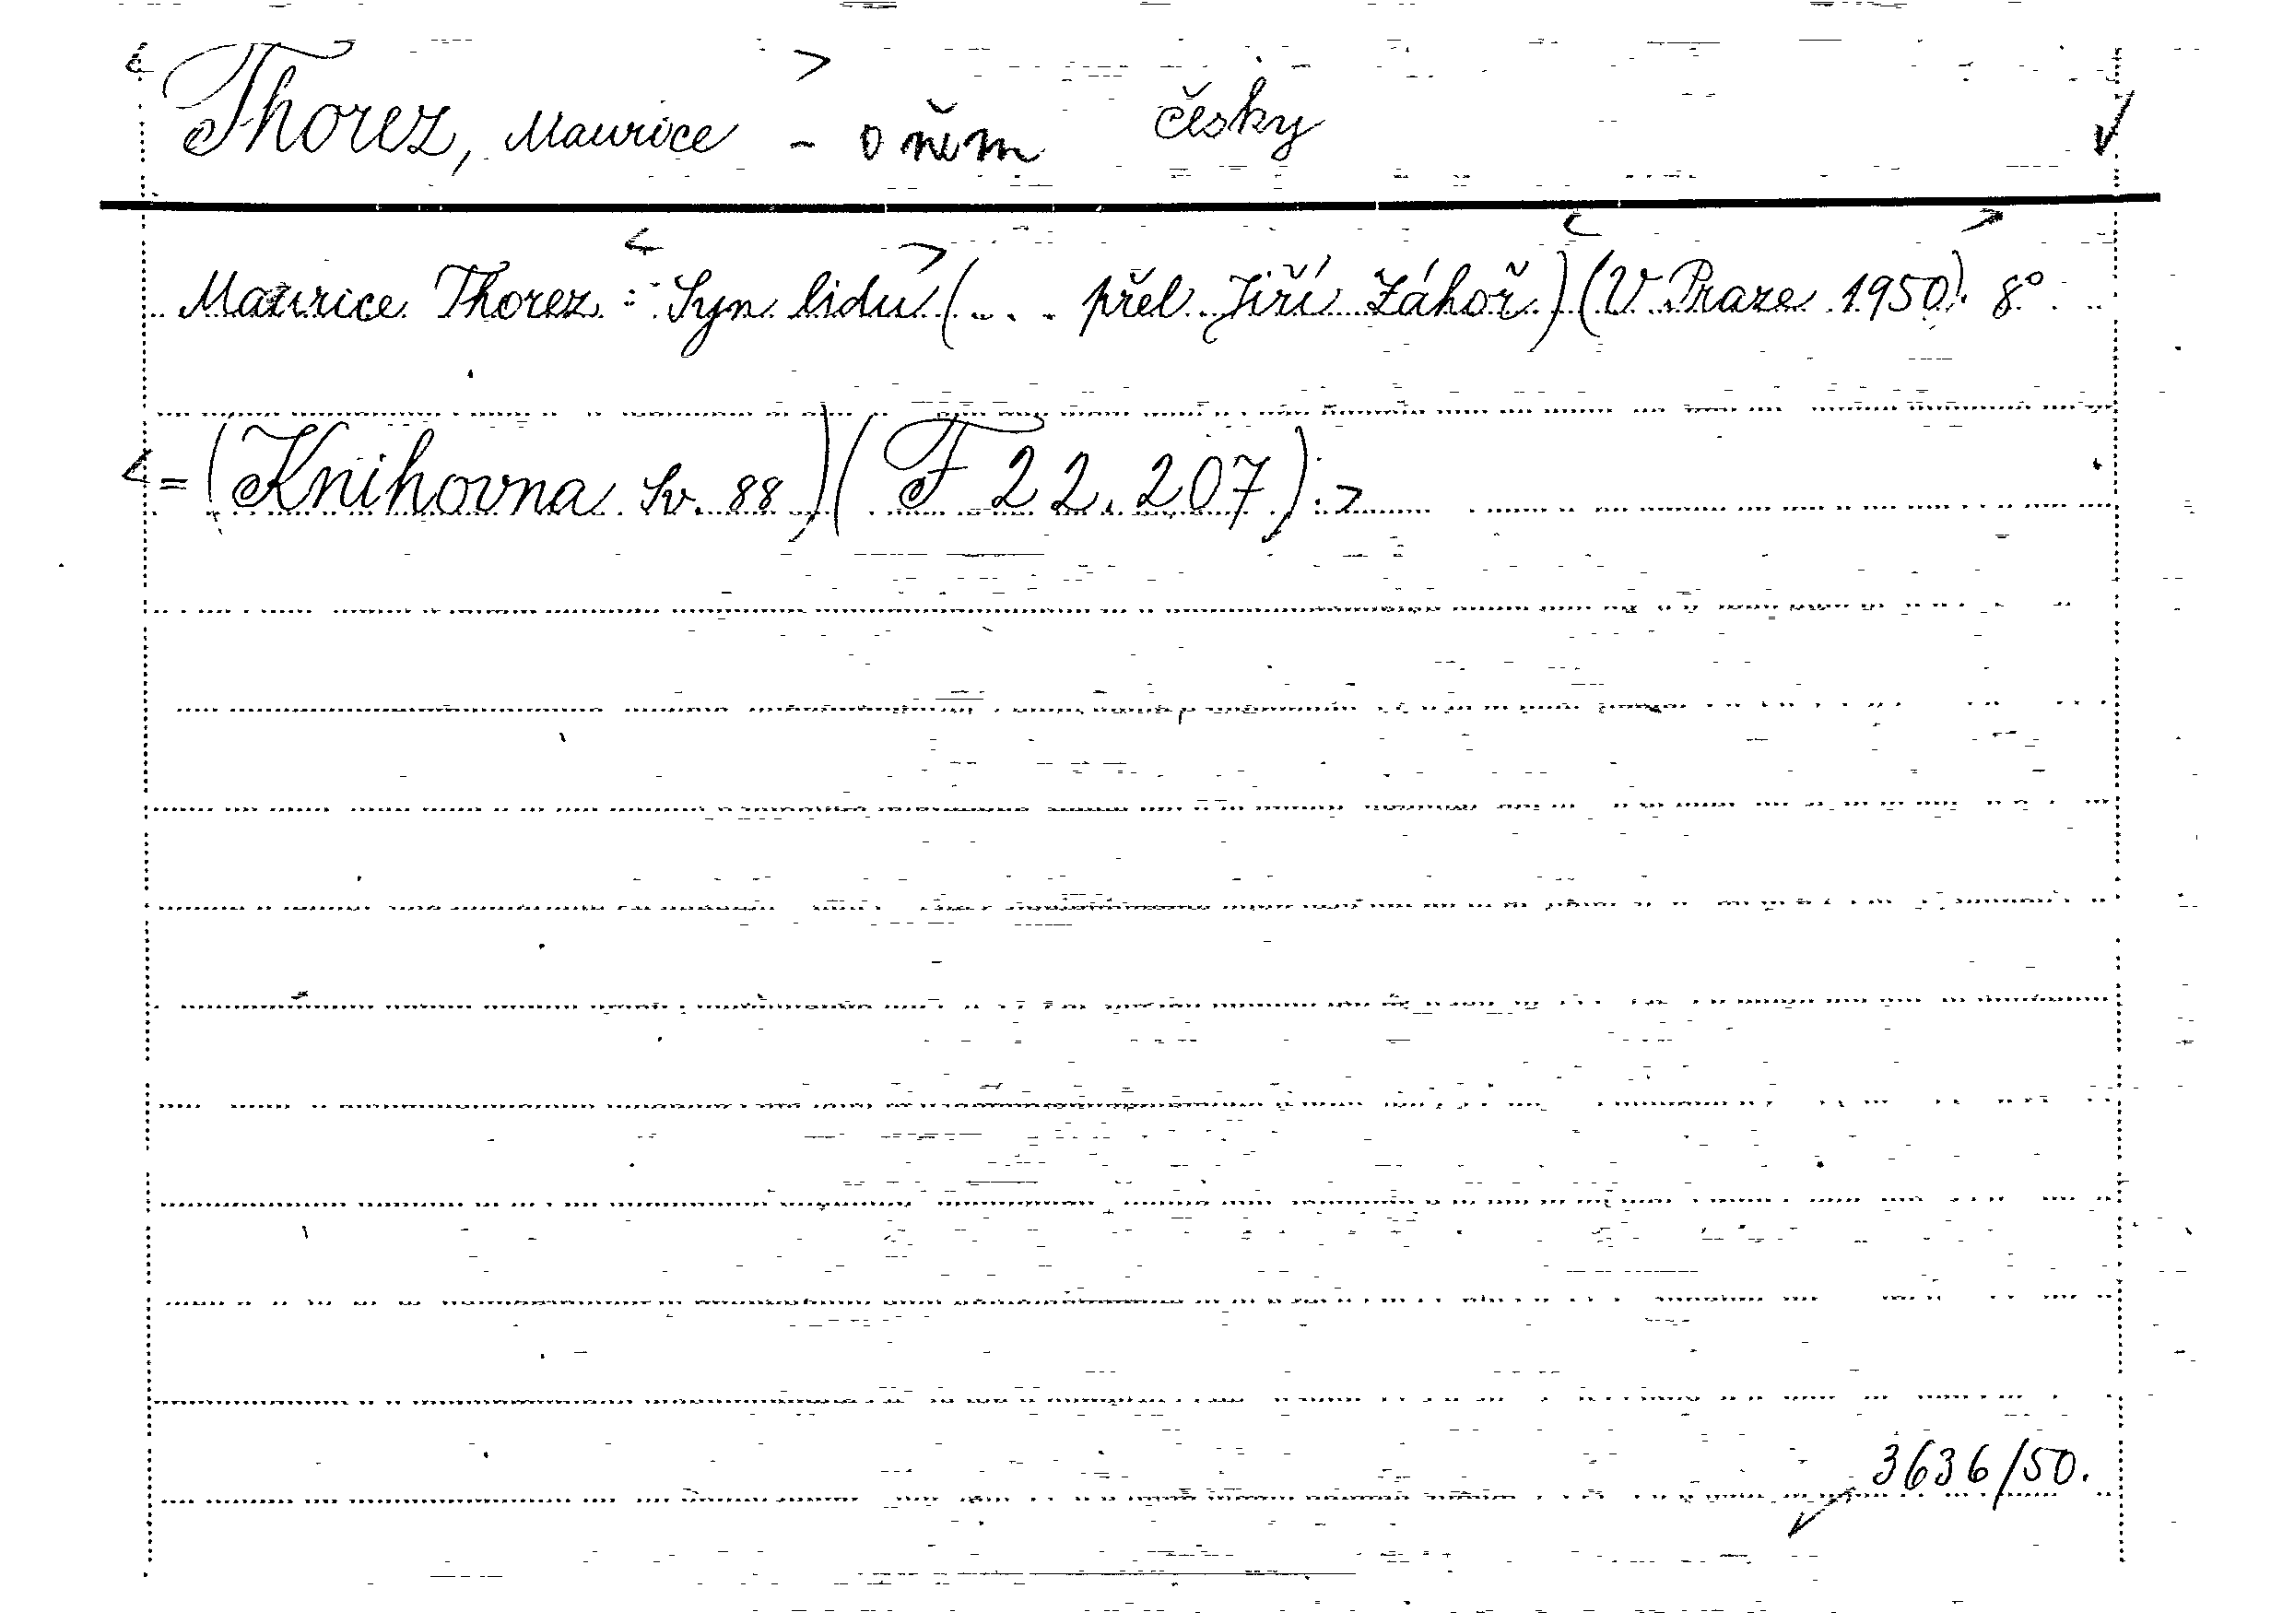 Thorez, Maurice - o něm česky
Maurice Thorez: Syn lidu (... přel. Jiří Záhoř) (V Praze 1950). 8°.
= (Knihovna Sv. 88) (F 22.207).
3636/50.